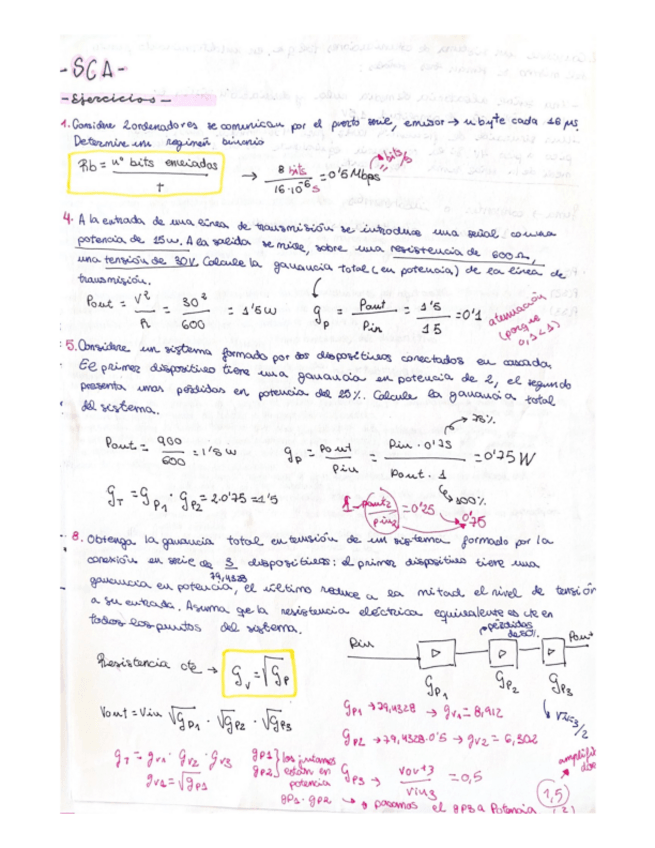 - SCA -
- Ejercicios -
1. Considere 2 ordenadores se comunican por el puerto serie, emisor → 1 byte cada 16 µs.
Determine un regimen binario
Rb = nº bits enviados / t → 8 bits / 16·10⁻⁶ s = 0'5 Mbps → bits/s
4. A la entrada de una línea de transmisión se introduce una señal con una
potencia de 15 W. A la salida se mide, sobre una resistencia de 600 Ω,
una tensión de 30V. Calcule la ganancia total (en potencia) de la línea de
transmisión.
Pout = V² / R = 30² / 600 = 1'5 W gp = Pout / Pin = 1'5 / 15 = 0'1 atenuación (porque 0,1 < 1)
5. Considere un sistema formado por dos dispositivos conectados en cascada.
El primer dispositivo tiene una ganancia en potencia de 2, el segundo
presenta unas pérdidas en potencia del 25%. Calcule la ganancia total
del sistema.
→ 75%
Pout = 900 / 600 = 1'5 W gp = Pout / Pin = Pin · 0'75 / Pout · 1 = 0'75 W
→ 100%
gT = gp1 · gp2 = 2·0'75 = 1'5 1 - pout2 / pin2 = 0'25 → 0'75
8. Obtenga la ganancia total en tensión de un sistema formado por la
conexión en serie de 3 dispositivos: el primer dispositivo tiene una
79,4328
ganancia en potencia, el último reduce a la mitad el nivel de tensión
a su entrada. Asuma que la resistencia eléctrica equivalente es cte en
todos los puntos del sistema.
pérdidas de 50%
Resistencia cte → gv = √gp Pin Pout
gp1 gp2 gp3
Vout = Vin √gp1 · √gp2 · √gp3 gp1 → 79,4328 → gv1 = 8,912 Vin3/2
gp2 → 79,4328·0'5 → gv2 = 6,302
gT = gv1 · gv2 · gv3 gp1 gp2 } los juntamos están en potencia gp3 → vout3 / vin3 = 0,5
gv1 = √gp1
gp1 · gp2 → pasamos el gp3 a Potencia
1,5